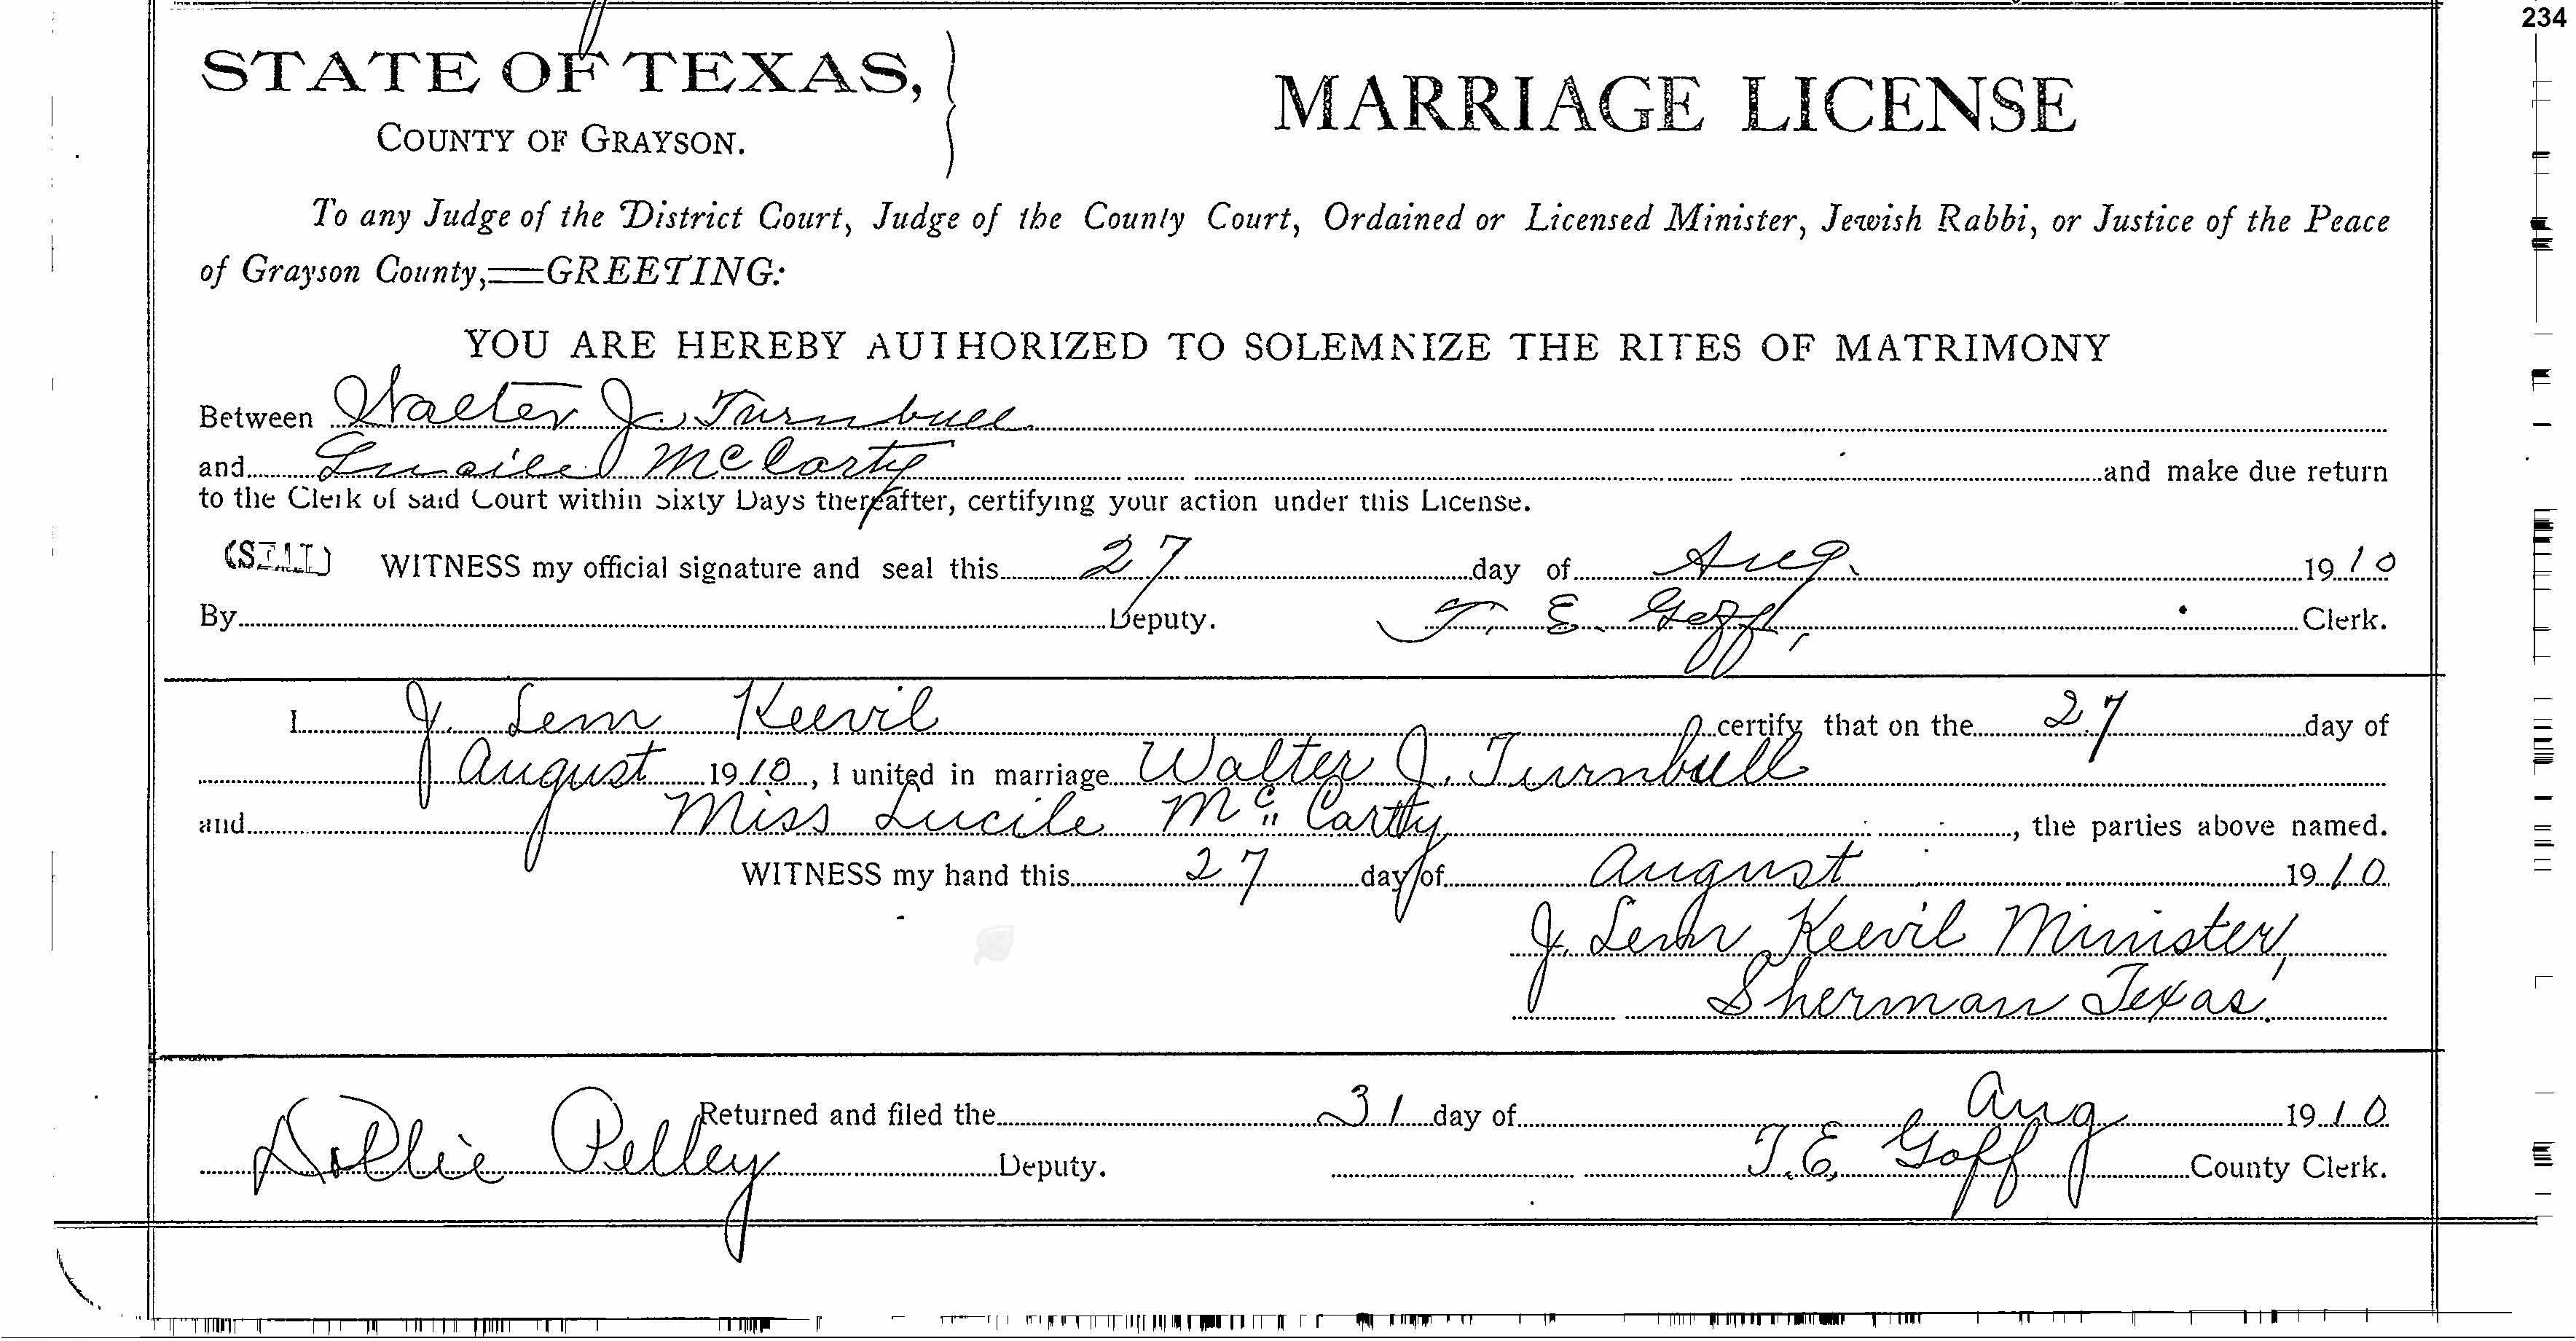 234
STATE OF TEXAS,
COUNTY OF GRAYSON.
MARRIAGE LICENSE
To any Judge of the District Court, Judge of the County Court, Ordained or Licensed Minister, Jewish Rabbi, or Justice of the Peace
of Grayson County,=GREETING:
YOU ARE HEREBY AUTHORIZED TO SOLEMNIZE THE RITES OF MATRIMONY
Between Walter J. Turnbull
and Lucile McCarty and make due return
to the Clerk of said Court within Sixty Days thereafter, certifying your action under this License.
(SEAL) WITNESS my official signature and seal this 27 day of Aug. 1910
By Deputy. T. E. Goff, Clerk.
I J. Lem Keevil certify that on the 27 day of
August 1910, I united in marriage Walter J. Turnbull
and Miss Lucile Mc Cartty, the parties above named.
WITNESS my hand this 27 day of August 1910
J. Lem Keevil Minister,
Sherman Texas.
Returned and filed the 31 day of Aug 1910
Dollie Pelley Deputy. T.E. Goff County Clerk.